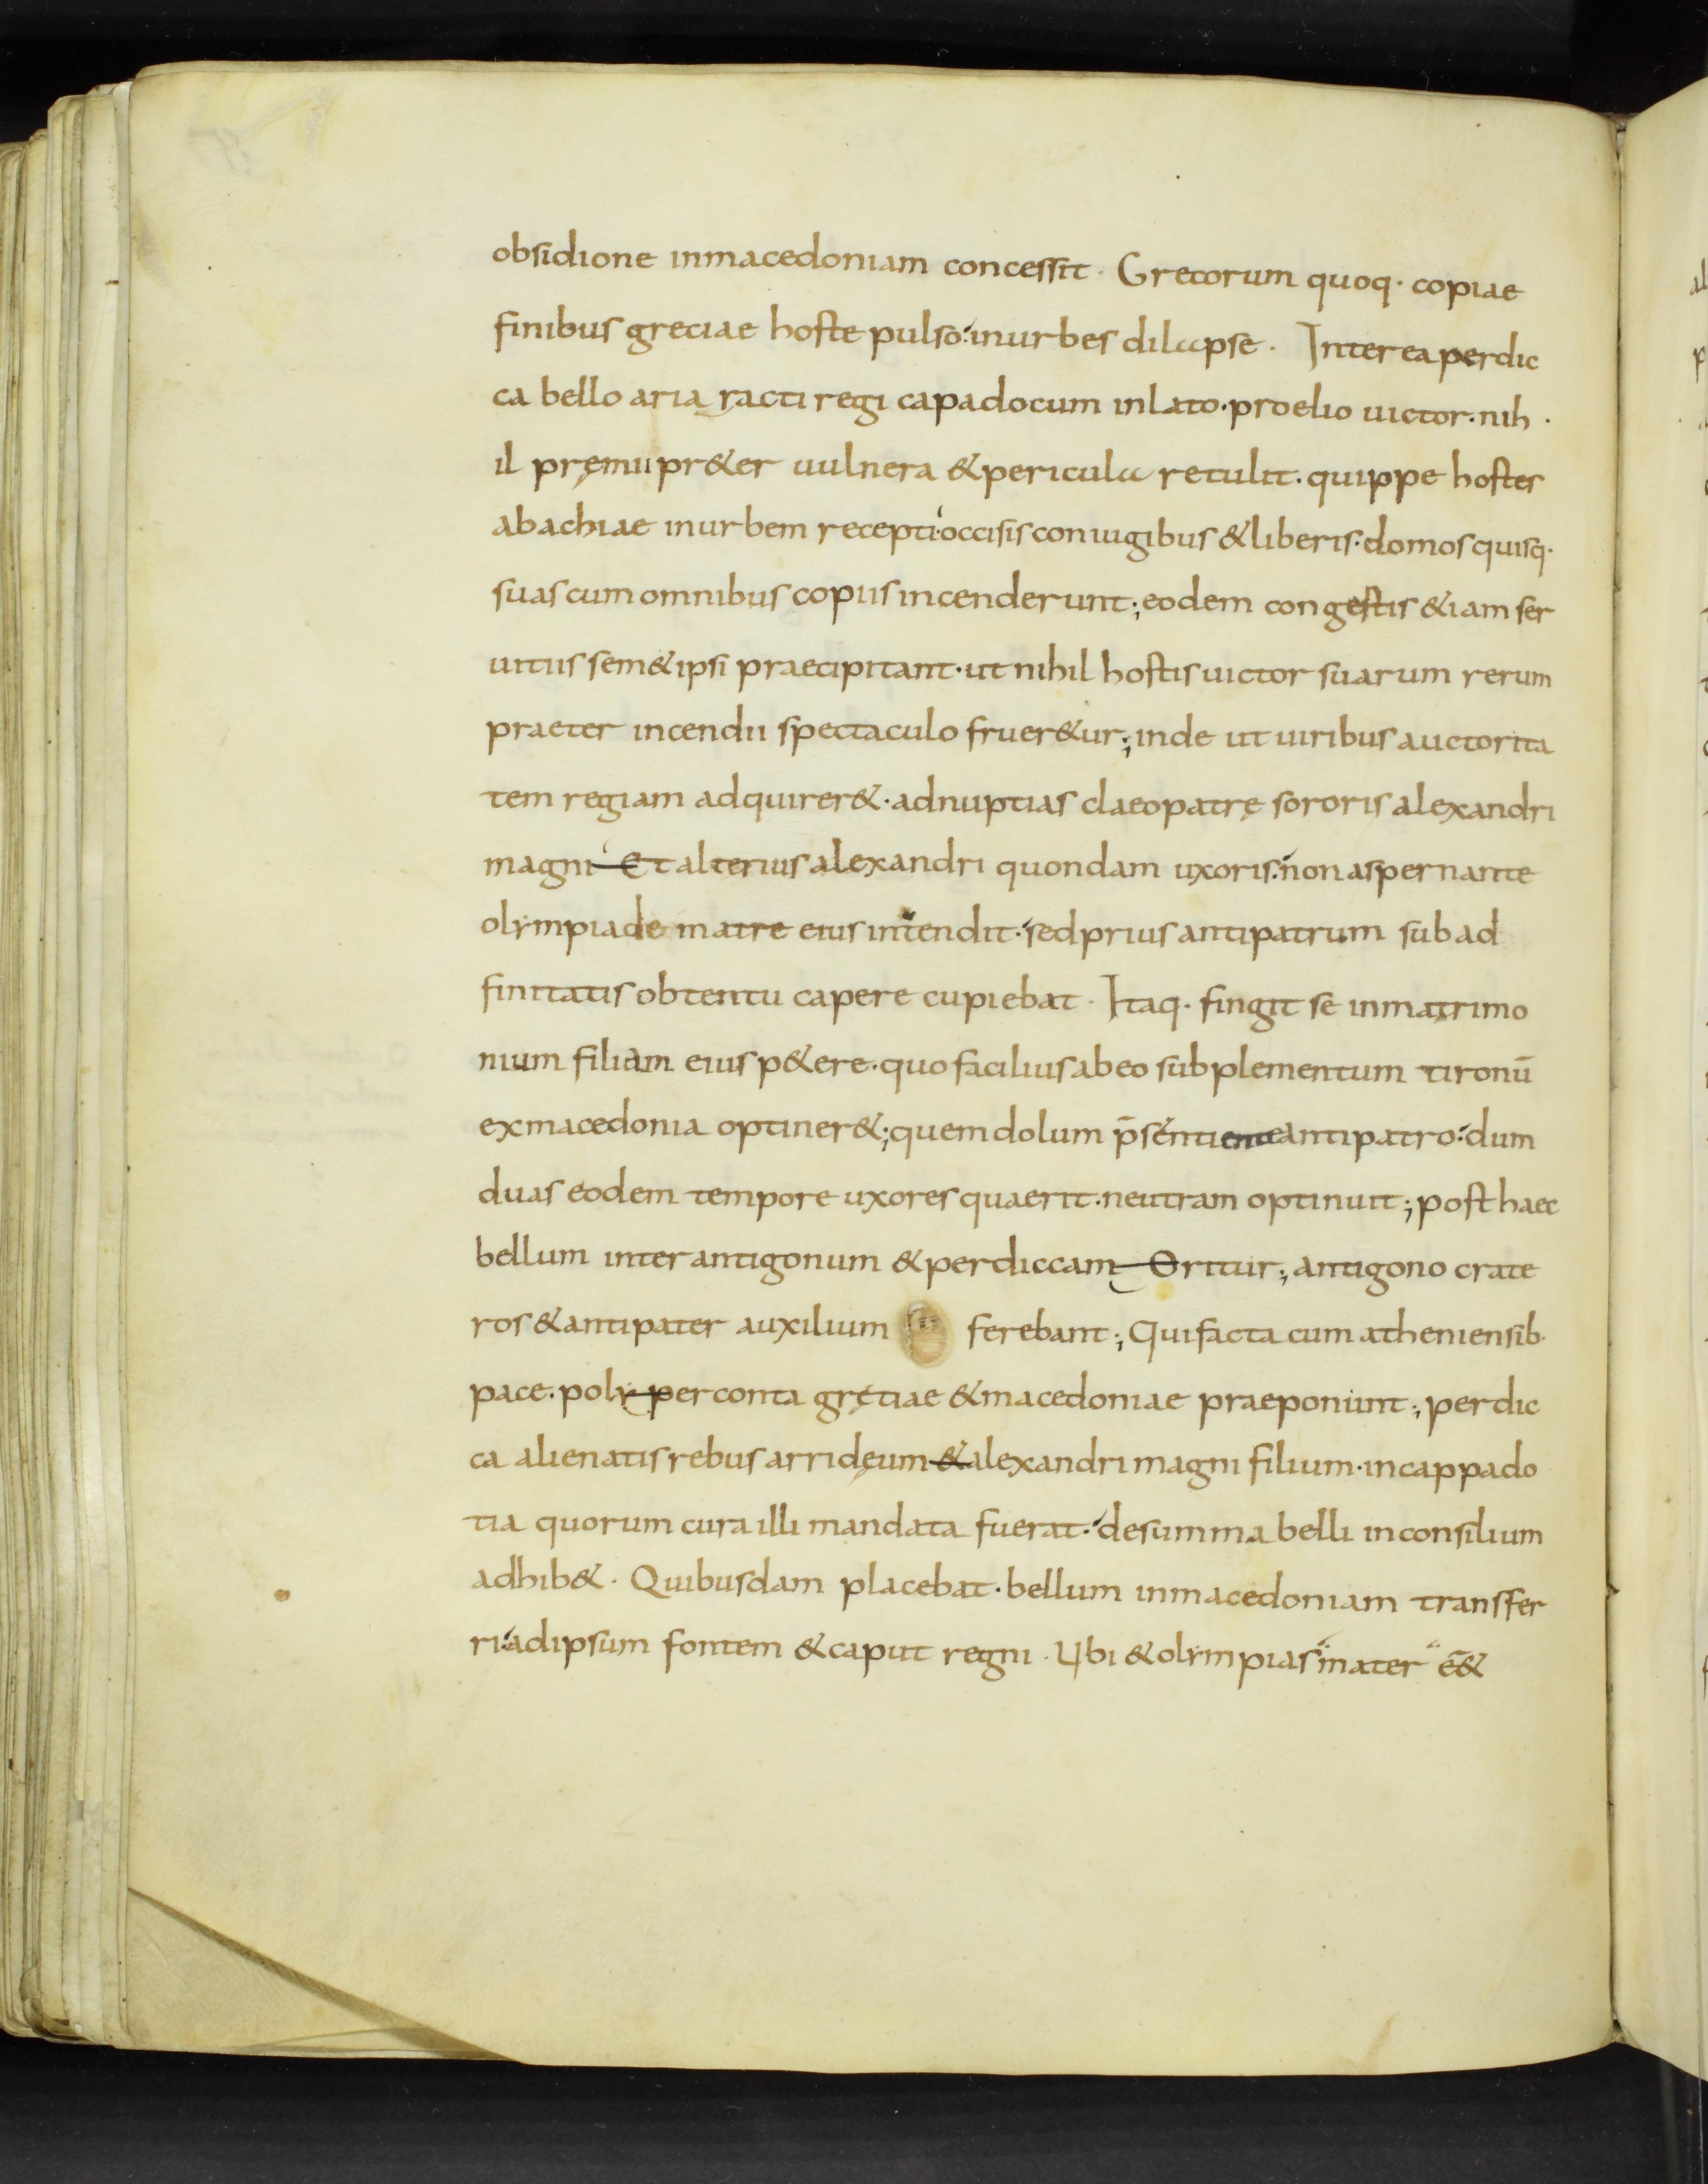 obsidione inmacedoniam concessit · Grecorum quoq· copiae
finibus greciae hoste pulso: inurbes dilapse · Interea perdic
ca bello aria racti regi capadocum inlato· proelio uictor· nih ·
il pręmii pr&er uulnera &pericula retulit· quippe hostes
abachiae inurbem recepti· occisis coniugibus &liberis· domos quisq·
suas cum omnibus copiis incenderunt; eodem congestis &iam ser
uitiis sem&ipsi praecipitant· ut nihil hostis uictor suarum rerum
praeter incendii spectaculo fruer&ur; inde ut uiribus auctorita
tem regiam adquirer&· adnuptias claeopatrę sororis alexandri
magni Et alterius alexandri quondam uxoris: non aspernante
olympiade matre eius intendit· sed prius antipatrum sub ad
finitatis obtentu capere cupiebat · Itaq· fingit se inmatrimo
nium filiam eius p&ere· quo facilius abeo subplementum tironū
exmacedonia optiner&; quem dolum p̄sentiente antipatro: dum
duas eodem tempore uxores quaerit· neutram optinuit; post haec
bellum inter antigonum &perdiccam Oritur; antigono crate
ros &antipater auxilium ferebant; Qui facta cum atheniensib·
pace· polyperconta gretiae &macedoniae praeponunt; perdic
ca alienatis rebus arridęum &alexandri magni filium· incappado
tia quorum cura illi mandata fuerat: desumma belli inconsilium
adhib&· Quibusdam placebat· bellum inmacedoniam transfer
ri: adipsum fontem &caput regni · Ubi &olympias mater ēé&